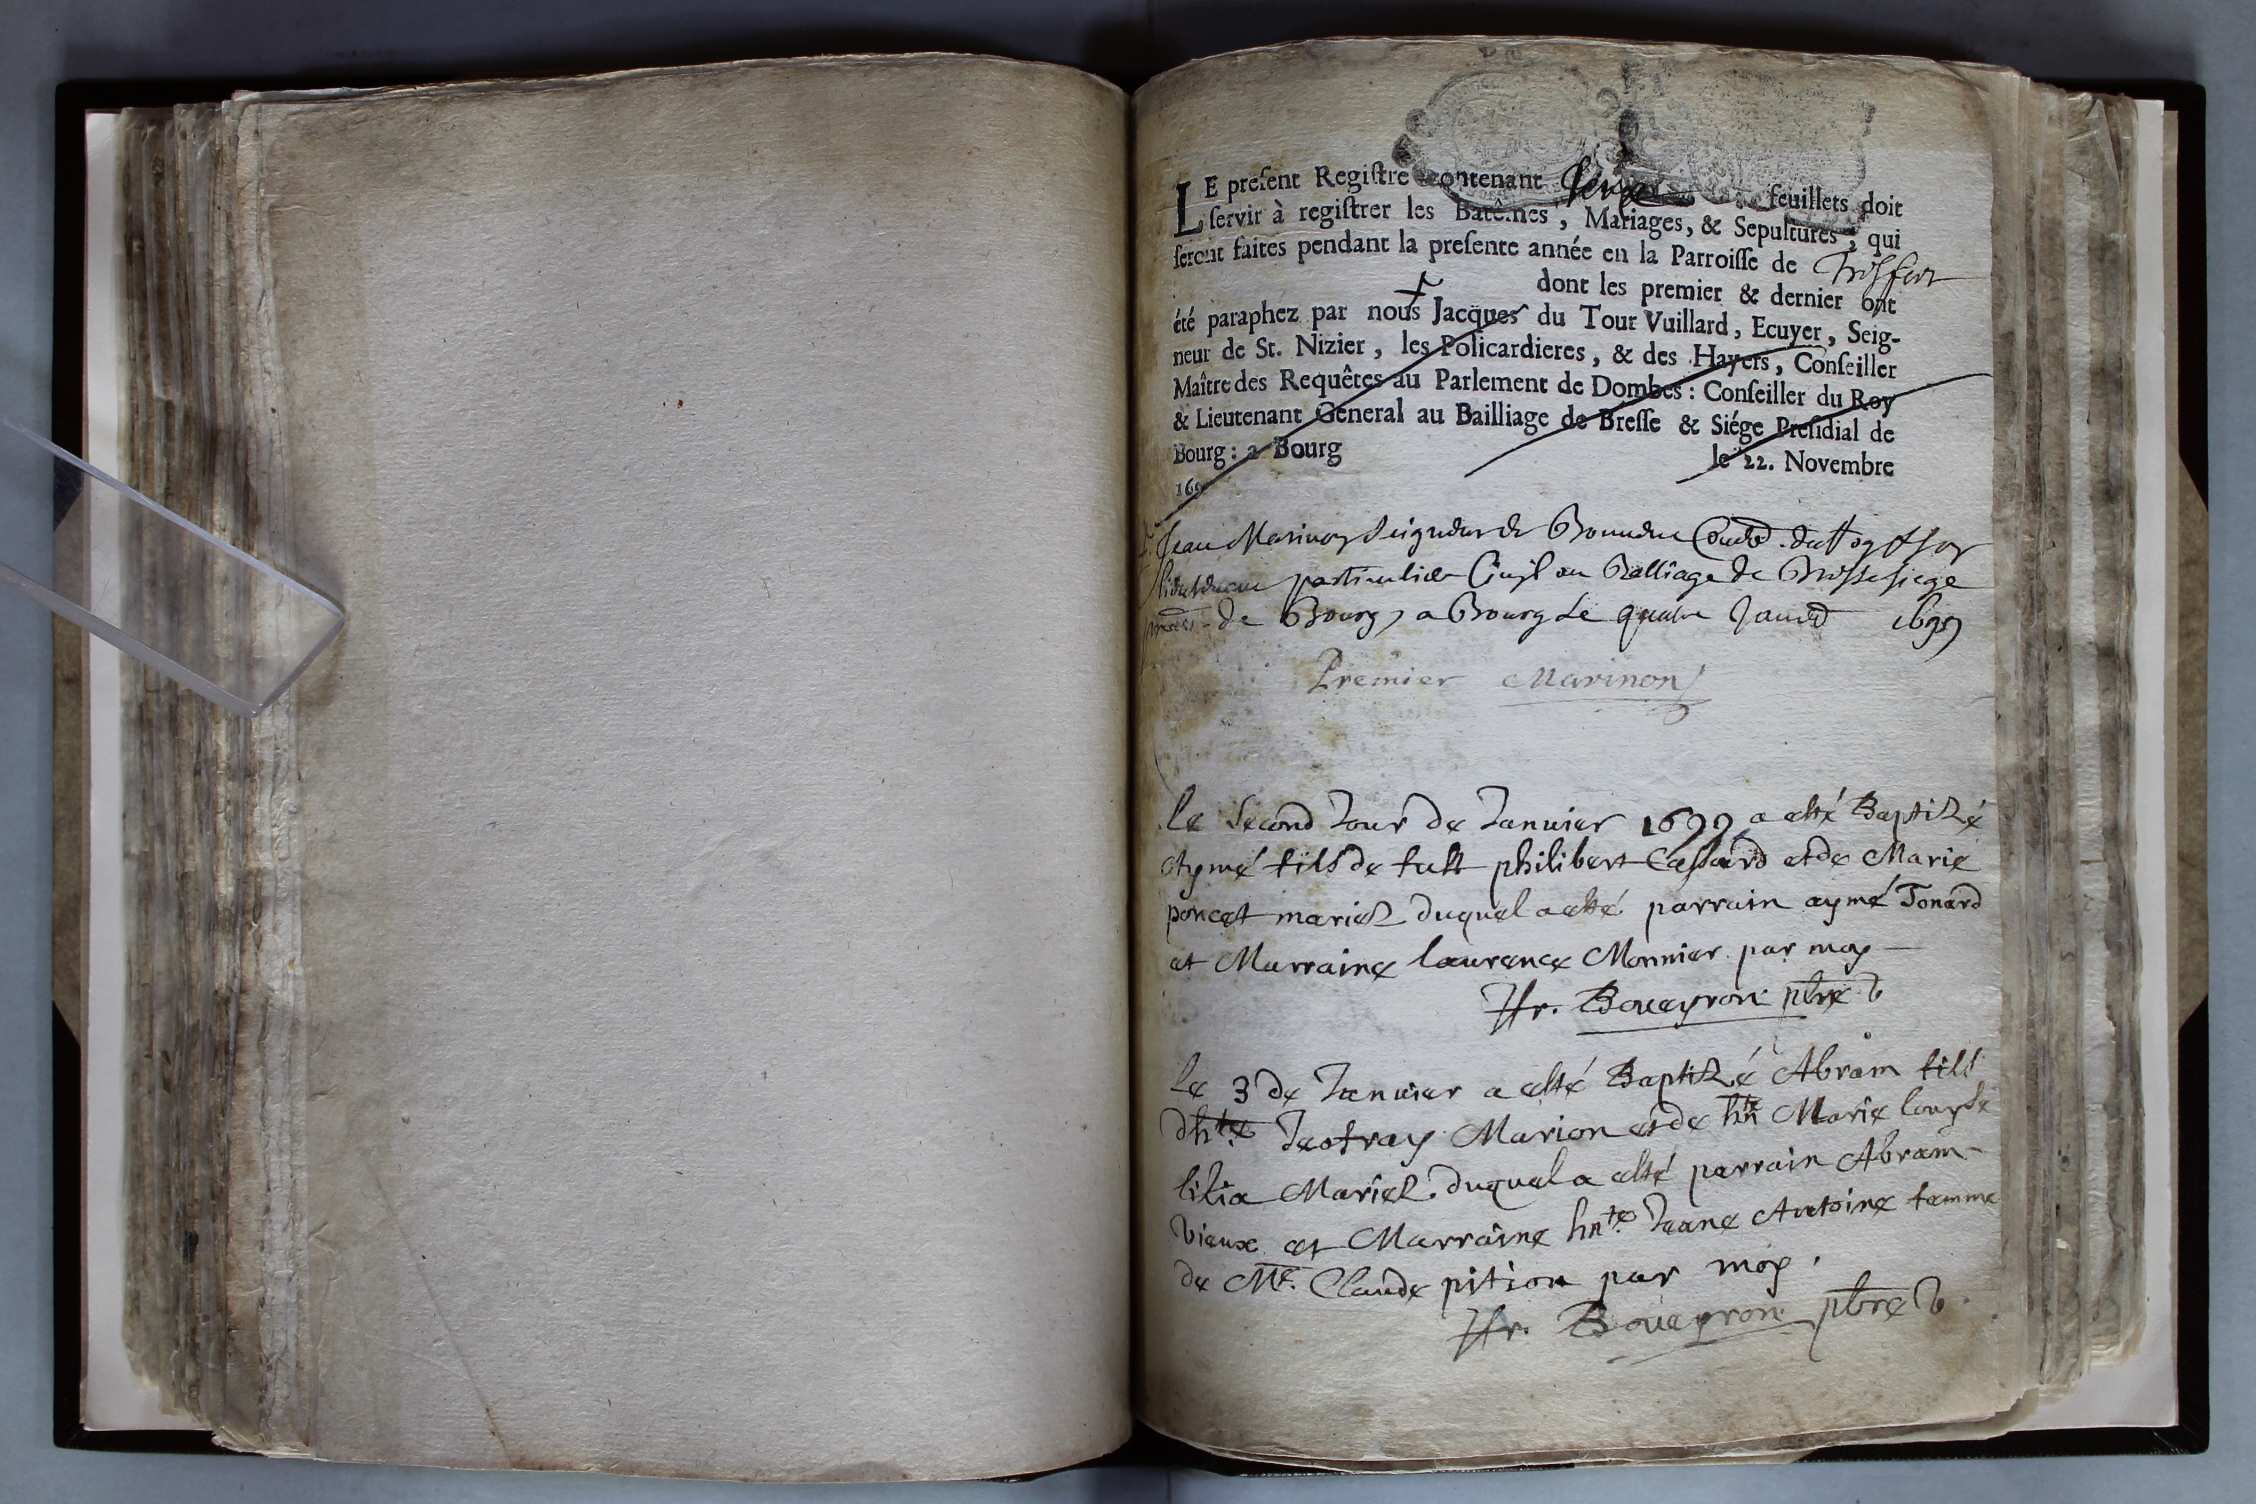 LE preſent Regiſtre contenant feuillets doit
ſervir à regiſtrer les Batêmes, Mariages, & Sepultures, qui
ſeront faites pendant la preſente année en la Parroiſſe de Treffort
dont les premier & dernier ont
été paraphez par nous Jacques du Tour Vuillard, Ecuyer, Seig-
neur de St. Nizier, les Policardieres, & des Hayers, Conſeiller
Maître des Requêtes au Parlement de Dombes: Conſeiller du Roy
& Lieutenant General au Bailliage de Breſſe & Siége Preſidial de
Bourg: a Bourg le 22. Novembre
169
Jean Marinon Seigneur de
particulier Civil au Balliage de Bresse siege
de Bourg, a Bourg Le quatre Janvier 1699
Premier Marinon
Le second Jour de Januier 1699 a esté Baptizé
Aymé fils de fust philibert Cassard et de Marie
poncet mariez duquel a esté parrain aymé Jonard
et Marraine laurence Monnier par moy
Fr. Boueyron pbre
Le 3 de Januier a esté Baptizé Abram fils
dhte Jeofray Marion et de hnte Marie louyse
lilia Mariez duquel a esté parrain Abram
vieux et Marraine hnte Jeane Antoine femme
de Mr. Claude pition par moy.
Fr. Boueyron pbre